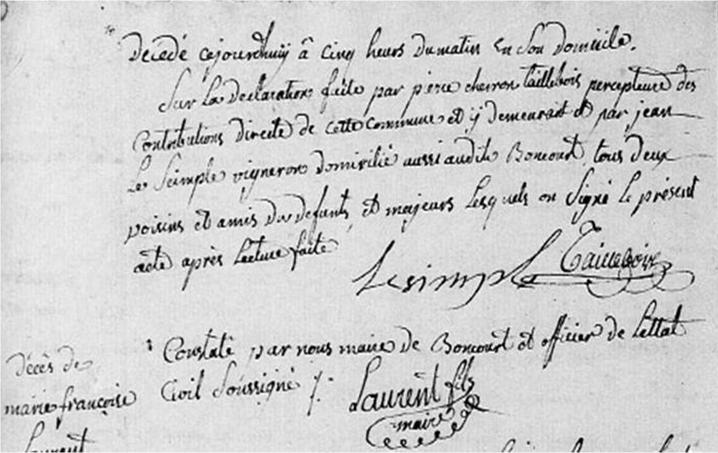 decedé cejourdhuy à cinq heurs dumatin en son domicile.
Sur la declaration faite par piere cherron taillebois percepteure des
Contributions directe de cette Commune et ij demeurant et par jean
Le Seimple vigneron domicilié aussi audit Boncourt, tous deux
voisins et amis du defants, et majeurs Lesquels on Signé le présent
acte après Lecture faite
Lesimple Taillebois
Constaté par nous maire de Boncourt et officier de Lettat
Civil Soussigné
Laurent fils
maire
décès de
marie françoise
Laurent